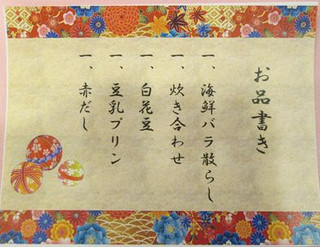 お品書き
一、海鮮バラ散らし
一、炊き合わせ
一、白花豆
一、豆乳プリン
一、赤だし